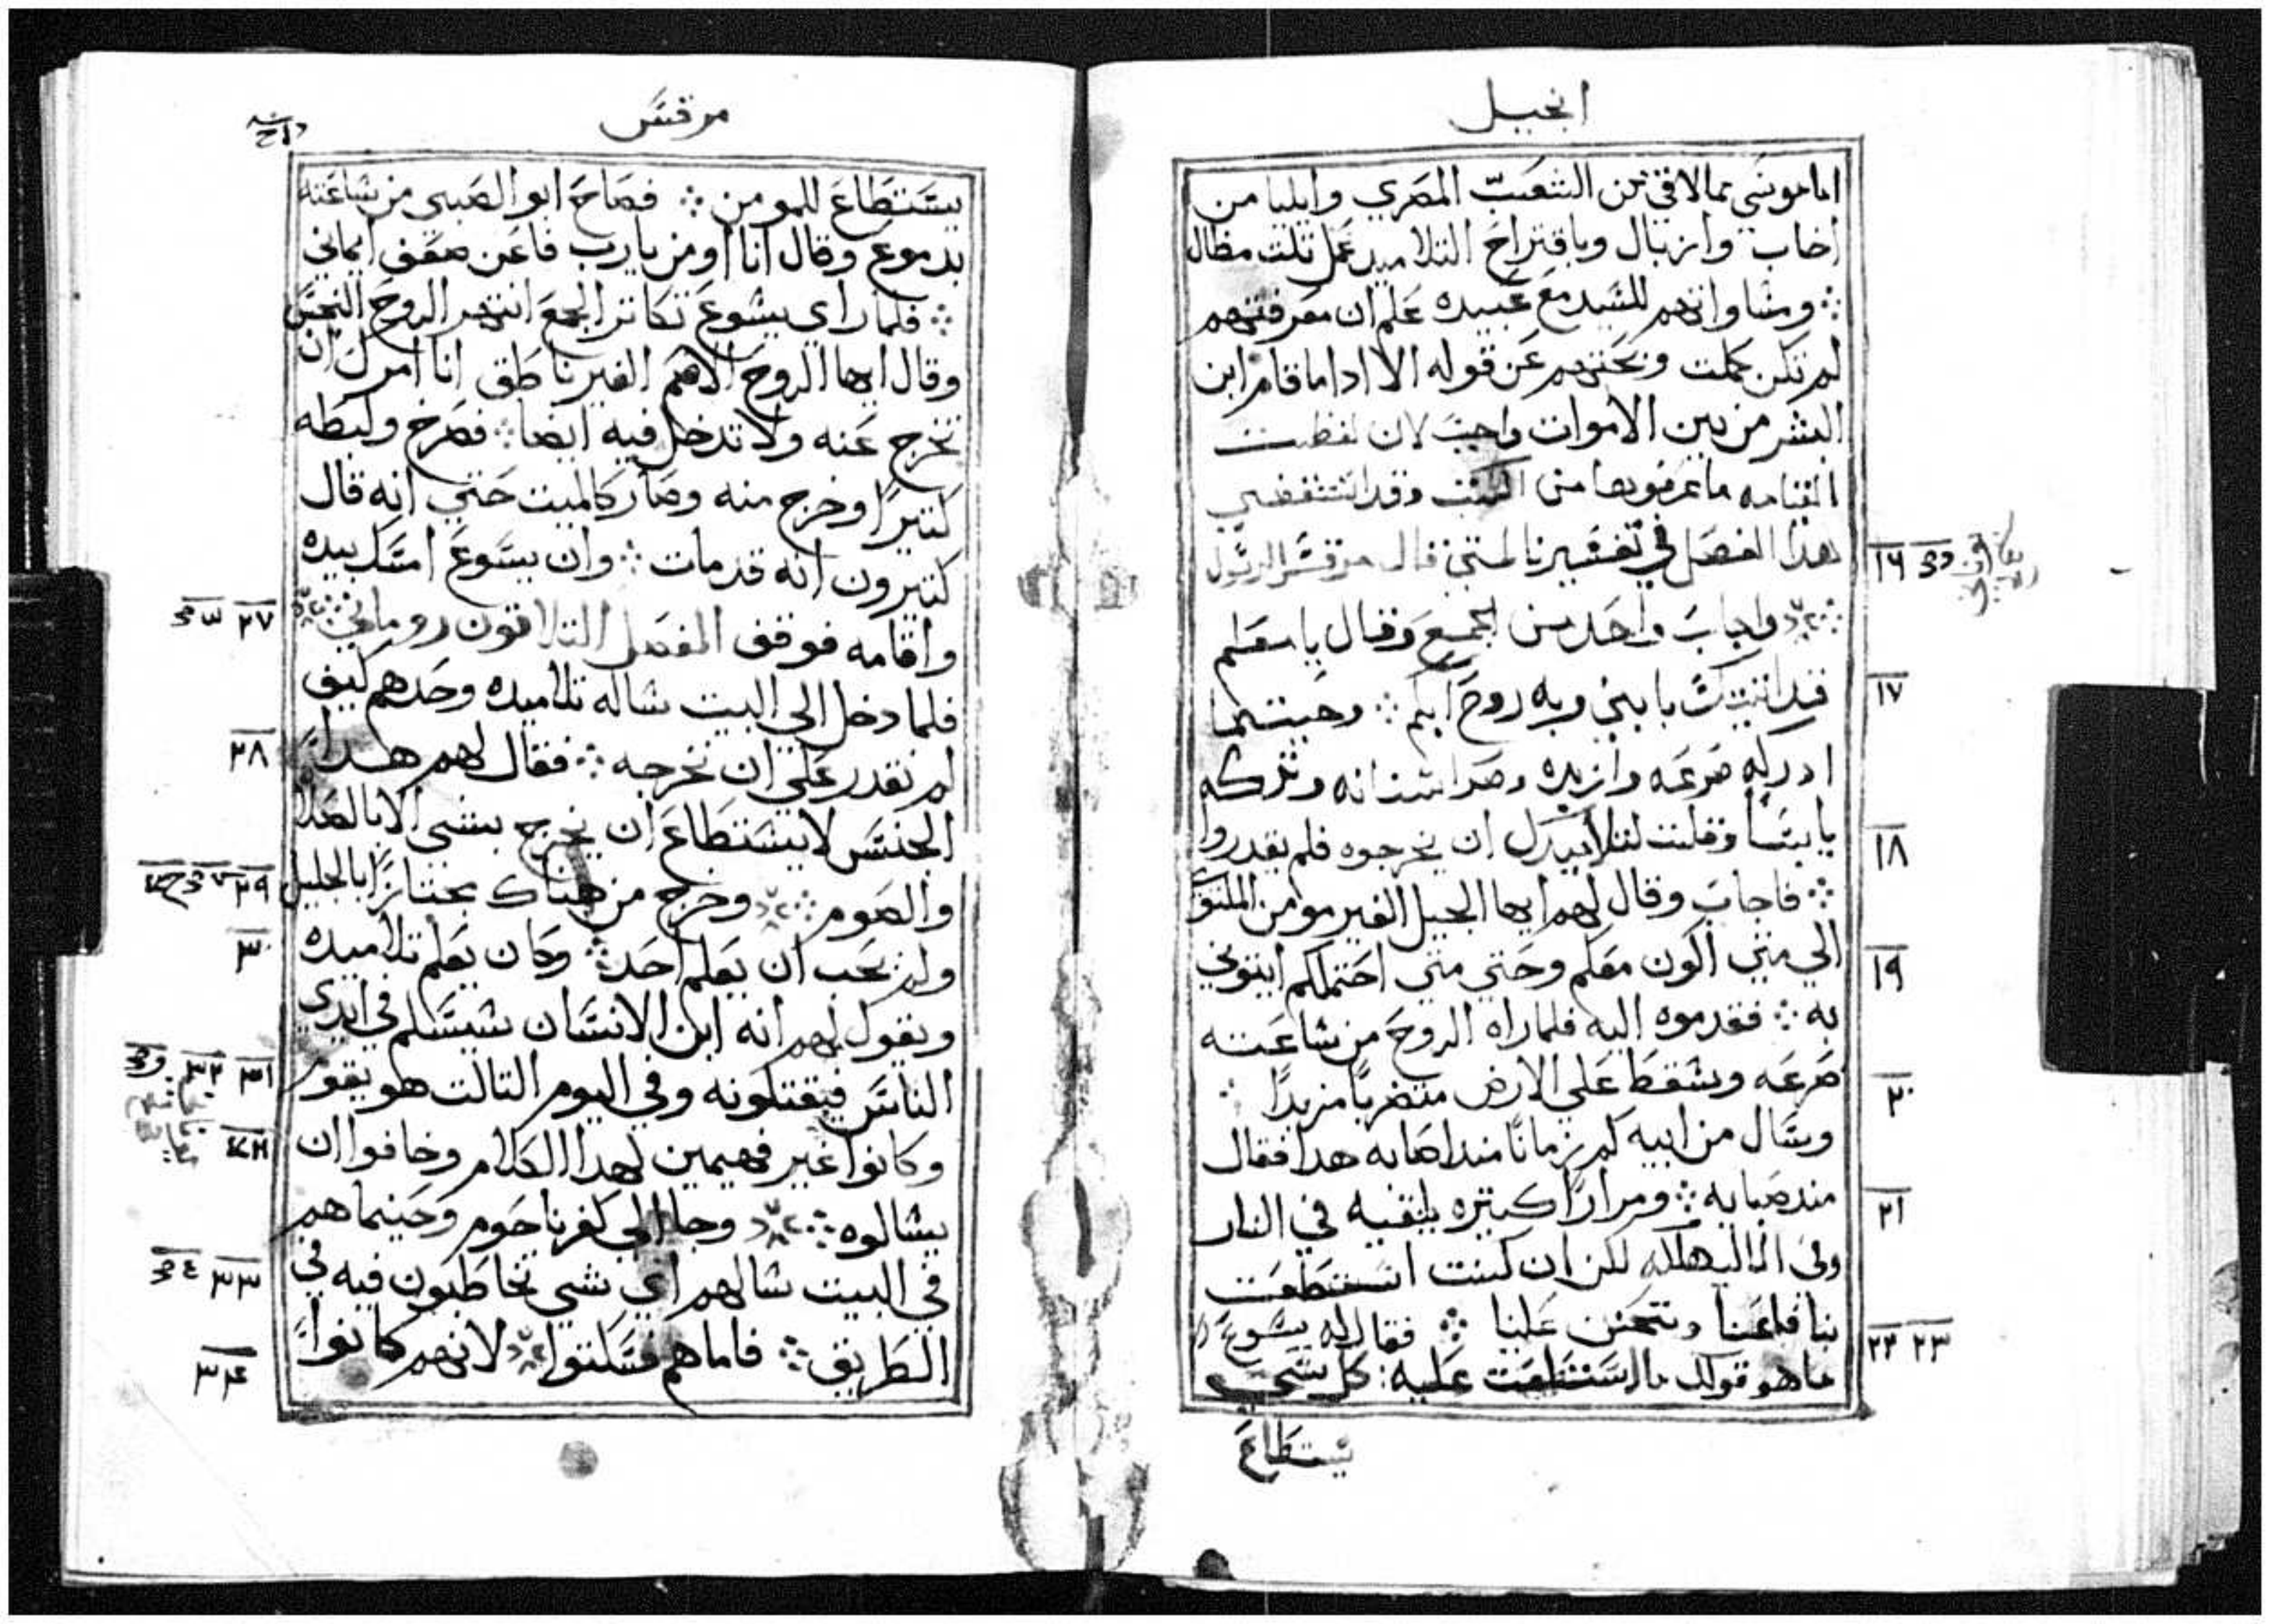 انجيل
اما موسي مما لاقي من الشعب المصري وايليا من
اخاب وازبال وباقتراح التلاميد عمل تلت مظال
وساواتهم للسيد مع عبيده علم ان معرفتهم
لم تكن كملت وبحتهم عن قوله الا ادا ما قام ابن
البشر من بين الاموات واجب لان لفظت
القيامه ما عرفوها من الكتب وقد
هدا الفصل في تفسيرنا لمتي قال مرقس الرسول
١٦
واجاب واحد من الجمع وقال يا معلم
قد اتيتك بابني وبه روح ابكم وحيتما
١٧
ادركه صرعه وازبده وصر اسنانه وتركه
يابسا وقلت لتلاميدك ان يخرجوه فلم يقدروا
١٨
فاجاب وقال لهم ايها الجيل الغير مومن الملتوي
الي متي اكون معكم وحتي متي احتملكم ايتوني
١٩
به فقدموه اليه فلما راه الروح من ساعته
صرعه وسقط علي الارض متضربا مزبدا
٢٠
وسال من ابيه كم زمانا مند اصابه هدا فقال
مند صباه ومرارا كتيره يلقيه في النار
٢١
وفي الما ليهلكه لكن ان كنت استطعت
بنا فاعنا وتتحنن علينا فقال له يسوع
٢٢ ٢٣
ما هو قولك ما استطعت عليه كل شي
يستطاع
مرقس
يستطاع للمومن فصاح ابو الصبي من ساعته
بدموع وقال انا اومن يا رب فاعن ضعف ايماني
فلما راي يسوع تكاتر الجمع انتهر الروح النجس
وقال ايها الروح الاصم الغير ناطق انا امرك ان
تخرج عنه ولا تدخل فيه ايضا فصرخ ولبطه
كتيرا وخرج منه وصار كالميت حتي انه قال
كتيرون انه قد مات وان يسوع امسك بيده
واقامه فوقف الفصل التلاتون روماني
٢٧
فلما دخل الي البيت ساله تلاميده وحدهم كيف
لم نقدر علي ان نخرجه فقال لهم هدا
٢٨
الجنس لا يستطاع ان يخرج بشي الا بالصلا
والصوم وخرج من هناك مجتازا بالجليل
٢٩
ولم يحب ان يعلم احد وكان يعلم تلاميده
٣٠
ويقول لهم انه ابن الانسان سيسلم في ايدي
الناس فيقتلونه وفي اليوم التالت هو يقوم
٣١ ٣٢
وكانوا غير فهيمين لهدا الكلام وخافوا ان
يسالوه وجا الي كفرناحوم وحينما هم
في البيت سالهم اي شي تخاطبون فيه في
٣٣
الطريق فاما هم فسكتوا لانهم كانوا
٣٤